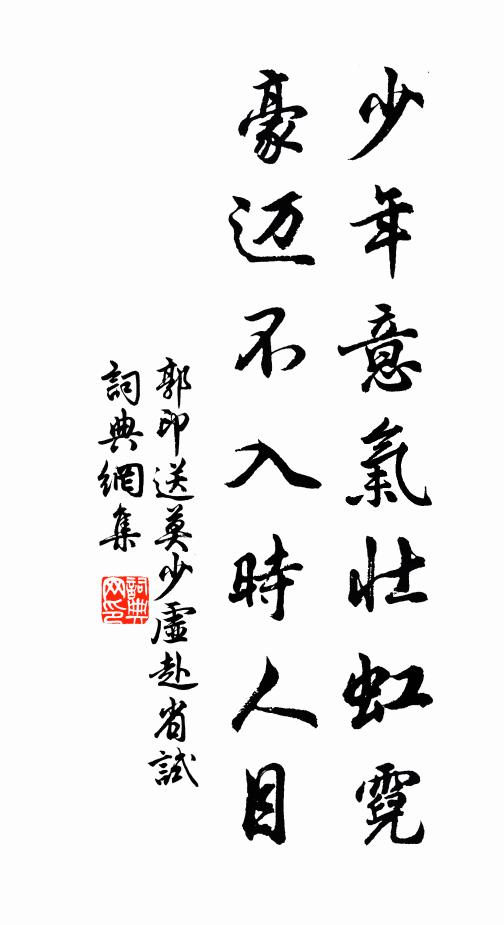 少年意氣壯虹霓
豪迈不入時人目
郭印送莫少虛赴省試
詞典網集
詞典
网印